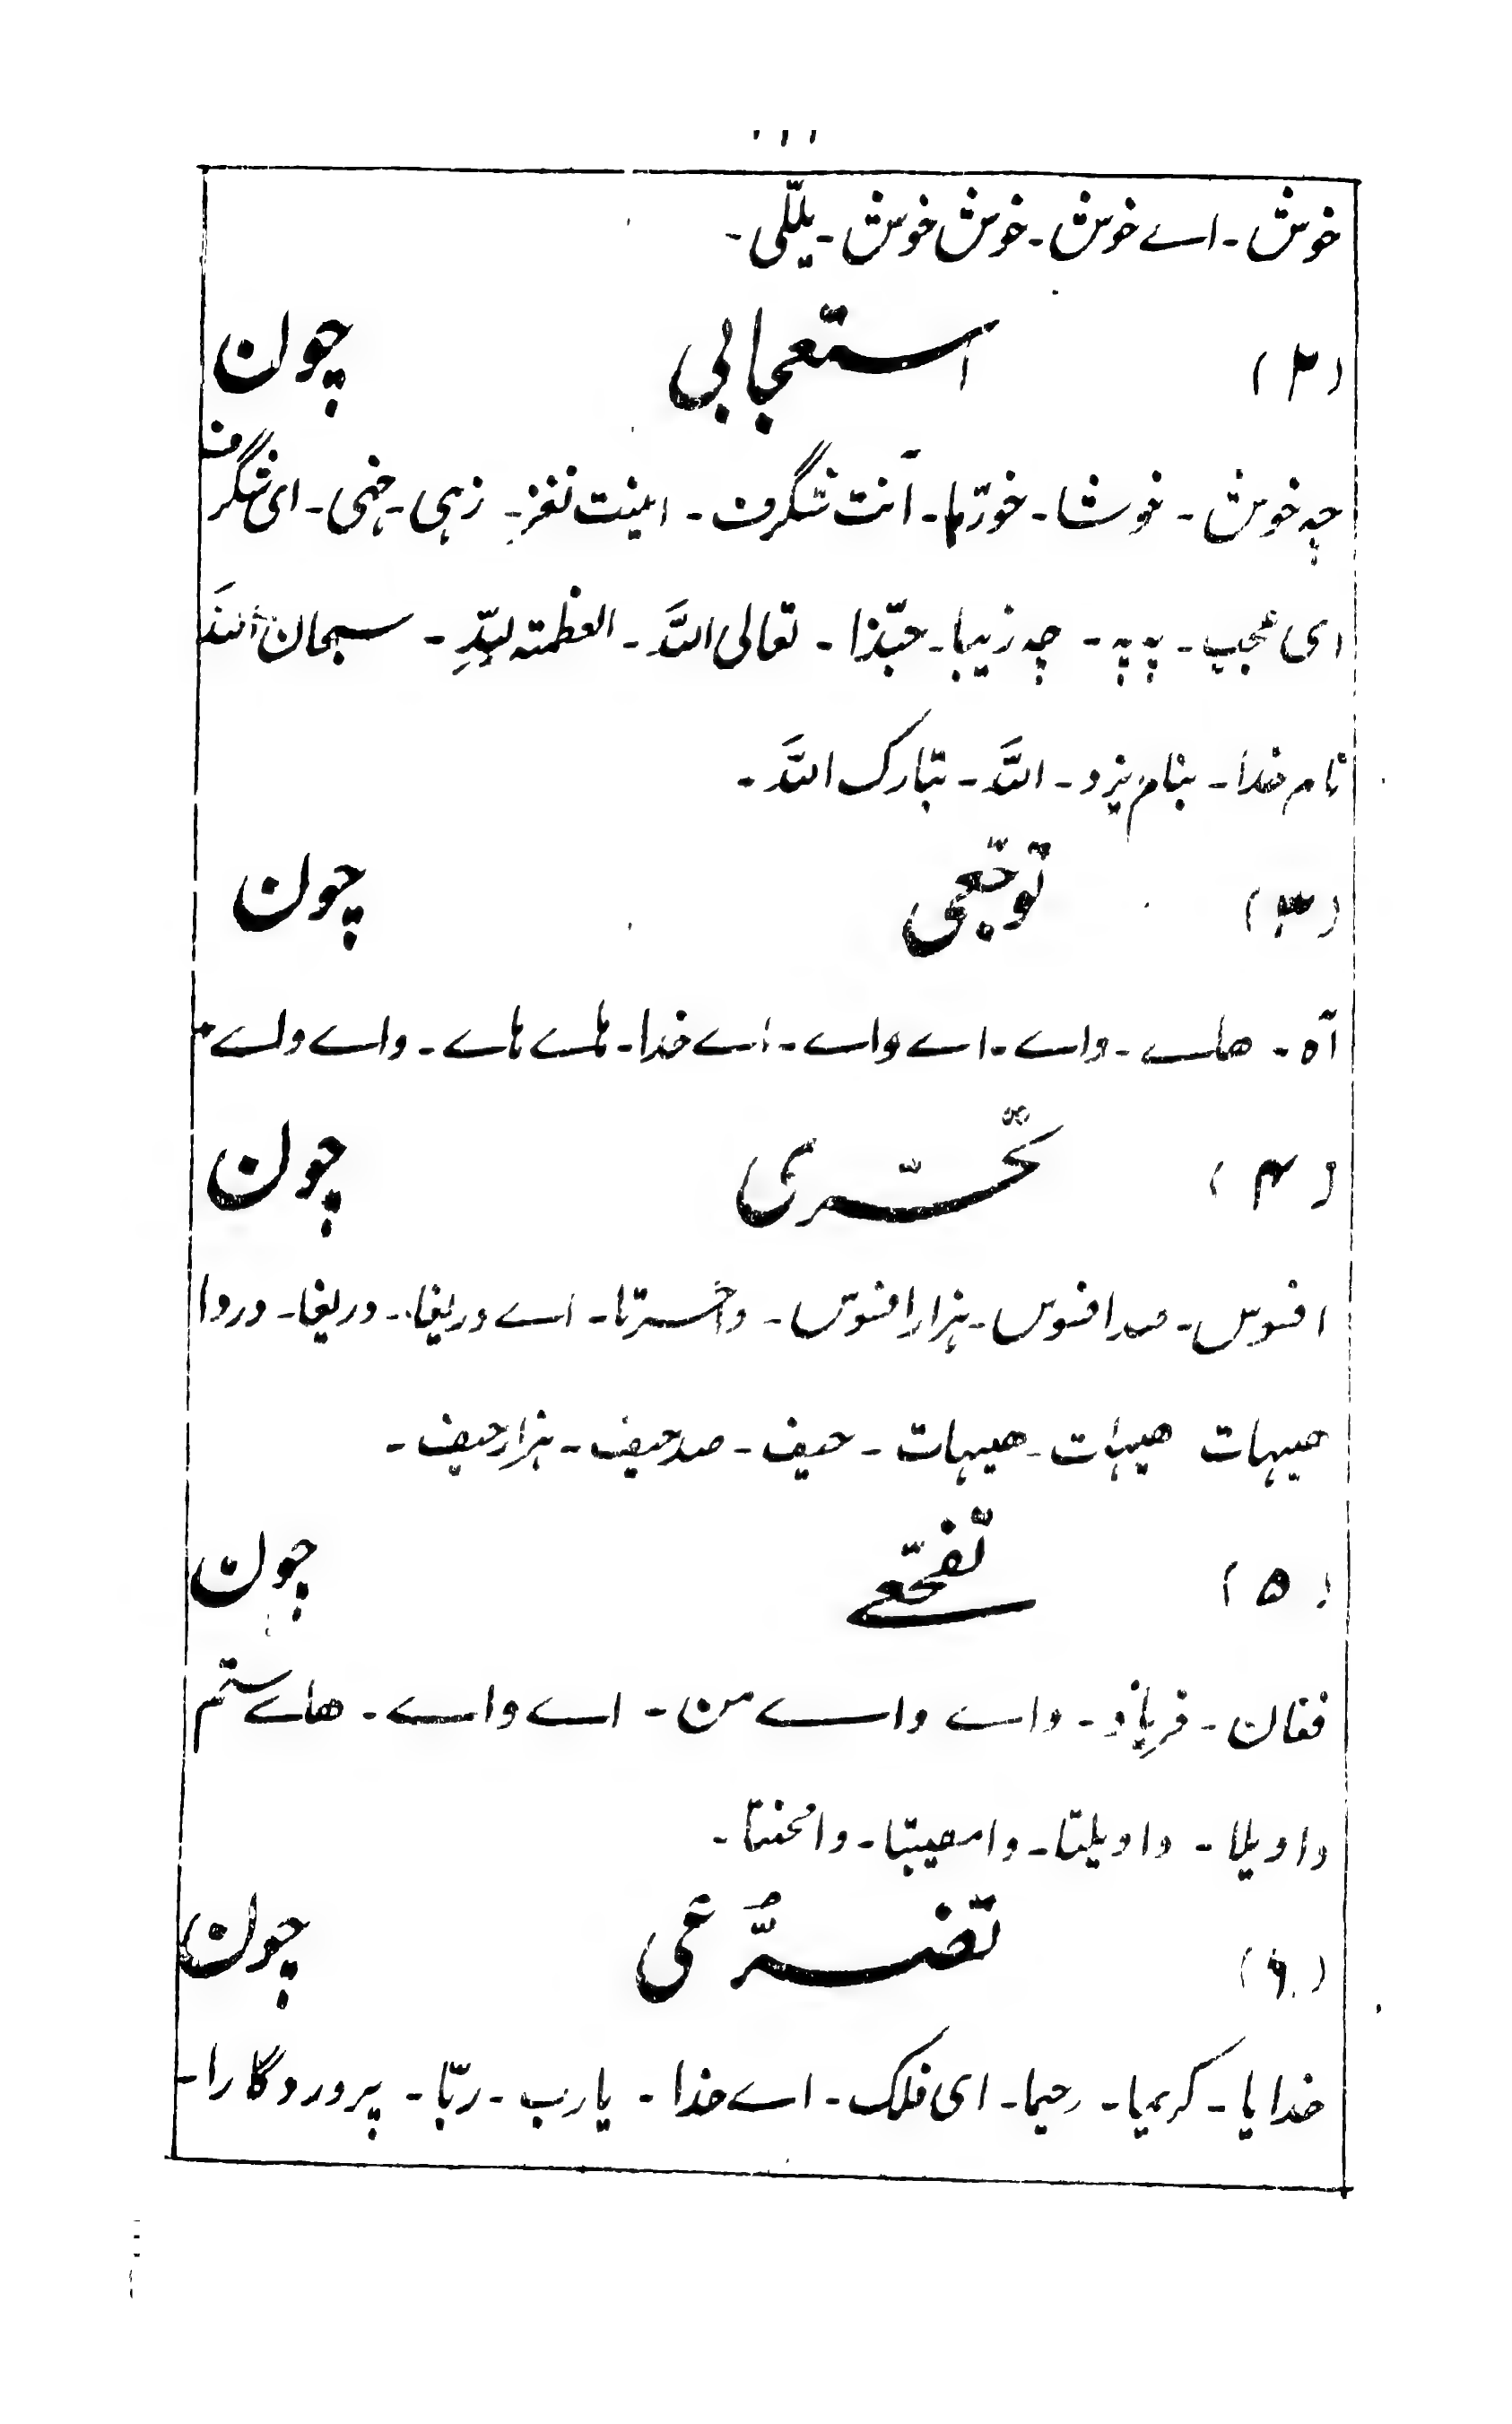 ۱۱۱
خوش - اے خوش - خوش خوش - یللّی -
(۲) استعجابی چون
چه خوش - خوشا - خورّما - آنت شگرف - اینت نغز - زهی - خهی - ای شگرف
ای عجب - په په - چه زیبا - حبّذا - تعالی اللّه - العظمته للّهِ - سبحان اللّه
نام خدا - بنام یزد - اللّه - تبارک اللّه -
(۳) توجّعی چون
آه - هاے - واے - اے واے - اے خدا - هاے هاے - واے واے
(۴) تحّسری چون
افسوس - صد افسوس - هزار افسوس - واحسرتا - اے دریغا - دریغا - دردا
هیهات هیهات - هیهات - حیف - صد حیف - هزار حیف -
(۵) تفجّعے چون
فغان - فریاد - واے واے من - اے واے - هاے ستم
واویلا - واویلتا - وامصیبتا - وامحنتا -
(۶) تضرُّعی چون
خدایا - کریما - رحیما - ای فلک - اے خدا - یارب - ربّا - پروردگارا -